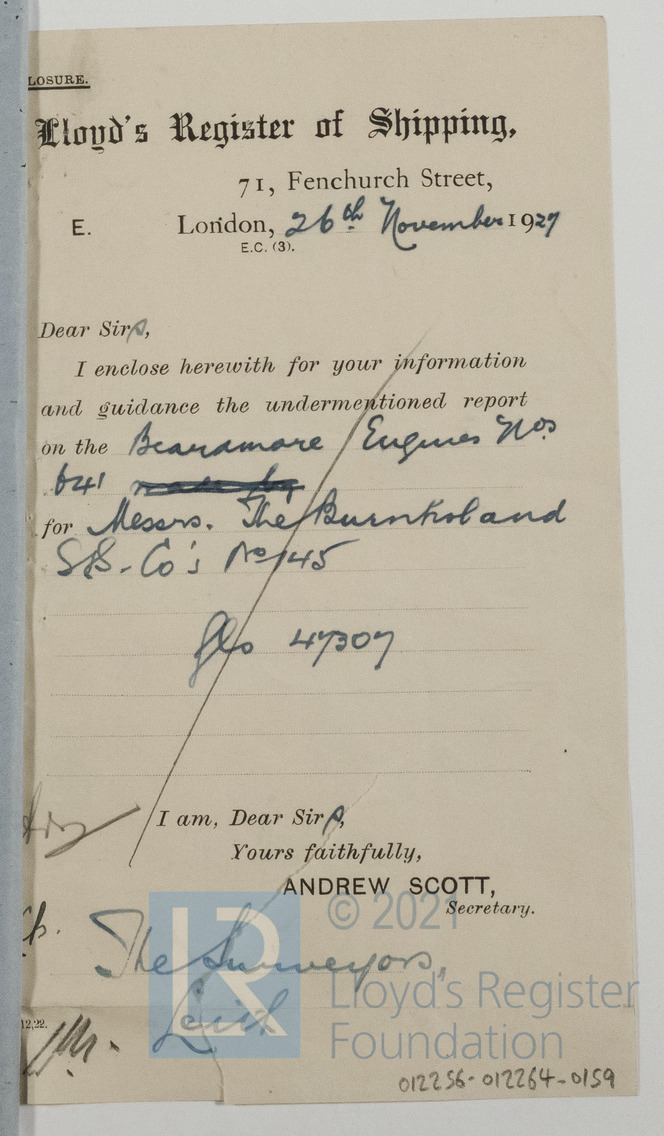 LOSURE.
Lloyd's Register of Shipping,
71, Fenchurch Street,
E. London, 26th November 1927
E.C. (3).
Dear Sirs,
I enclose herewith for your information
and guidance the undermentioned report
on the Beardmore Engines Nos
641
for Messrs. The Burntisland
S.S. Co's No 145
Gls 47307
I am, Dear Sirs,
Yours faithfully,
ANDREW SCOTT,
Secretary.
The Surveyors,
Leith
12,22.
LR
© 2021
Lloyd's Register
Foundation
012256-012264-0159